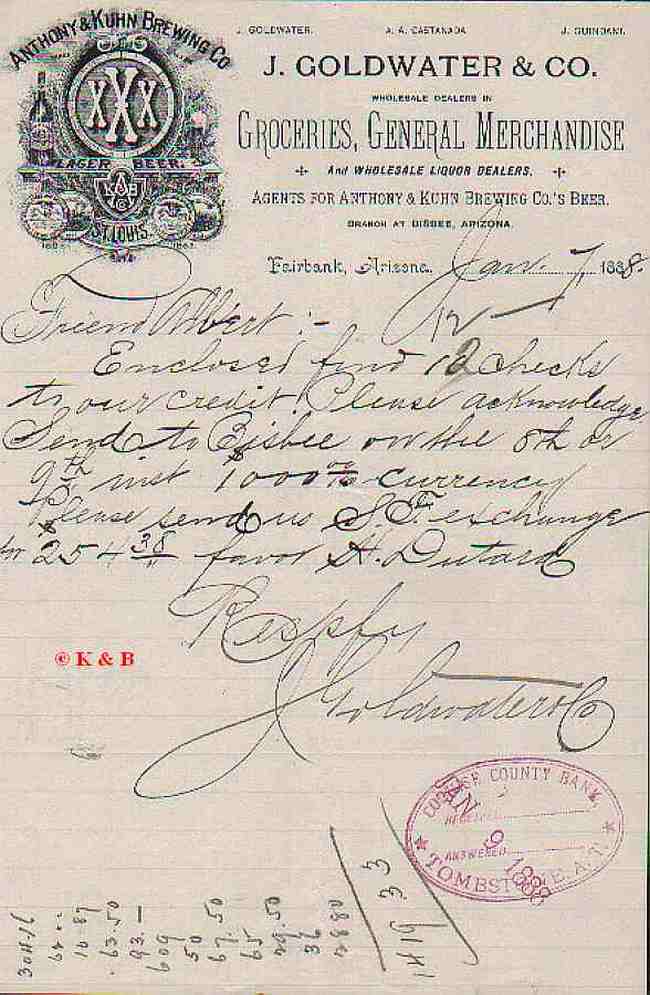 ANTHONY & KUHN BREWING CO
XXX
LAGER BEER
A
K & B
Co
ST. LOUIS.
J. GOLDWATER. A. A. CASTANADA J. GUINDANI.
J. GOLDWATER & CO.
WHOLESALE DEALERS IN
GROCERIES, GENERAL MERCHANDISE
And WHOLESALE LIQUOR DEALERS.
AGENTS FOR ANTHONY & KUHN BREWING CO.'S BEER.
BRANCH AT BISBEE, ARIZONA.
Fairbank, Arizona. Jan. 7, 1888.
Friend Albert :-
12
Enclosed find 12 checks
to our credit. Please acknowledge
Send to Bisbee on the 8th or
9th inst $1000 00/100 currency
Please send us S.F. exchange
for $254 38/ favor H. Dutard
Respfy
J Goldwater & Co
© K & B
COCHISE COUNTY BANK,
RECEIVED
JAN 9 1888
ANSWERED
TOMBSTONE, A.T.
304.16
64
10.87
63.50
93.—
609
50
67.50
65
49.50
36
0880
1419 33